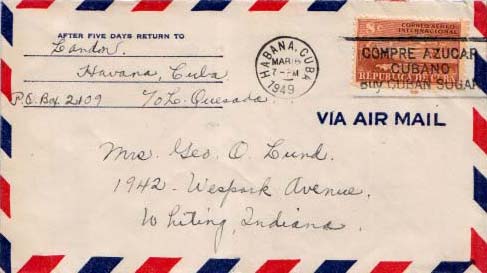 AFTER FIVE DAYS RETURN TO
Landon.
Havana, Cuba
P.O. Box. 2409 %L. Quesada.
HABANA, CUBA
MAR
7-PM
1949
8¢ CORREO AEREO
INTERNACIONAL
REPUBLICA DE
COMPRE AZUCAR
CUBANO
BUY CUBAN SUGAR
VIA AIR MAIL
Mrs. Geo. O. Lund.
1942 - Wespark Avenue.
Whiting, Indiana.